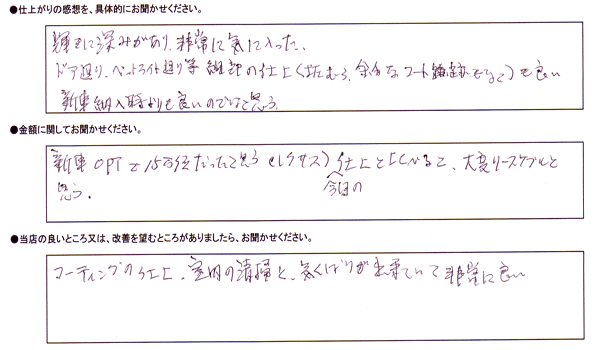 ●仕上がりの感想を、具体的にお聞かせください。
輝きに深みがあり、非常に気に入った。
ドア廻り、ヘッドライト廻り等 細部の仕上 も良い
新車納入時よりも良いのでは と思う。
●金額に関してお聞かせください。
新車OPTで15万位だったと思う(レクサス) 仕上と比べると、大変リーズナブルと
思う。 今回の
●当店の良いところ又は、改善を望むところがありましたら、お聞かせください。
コーティングの仕上、室内の清掃と、気くばりが出来ていて非常に良い